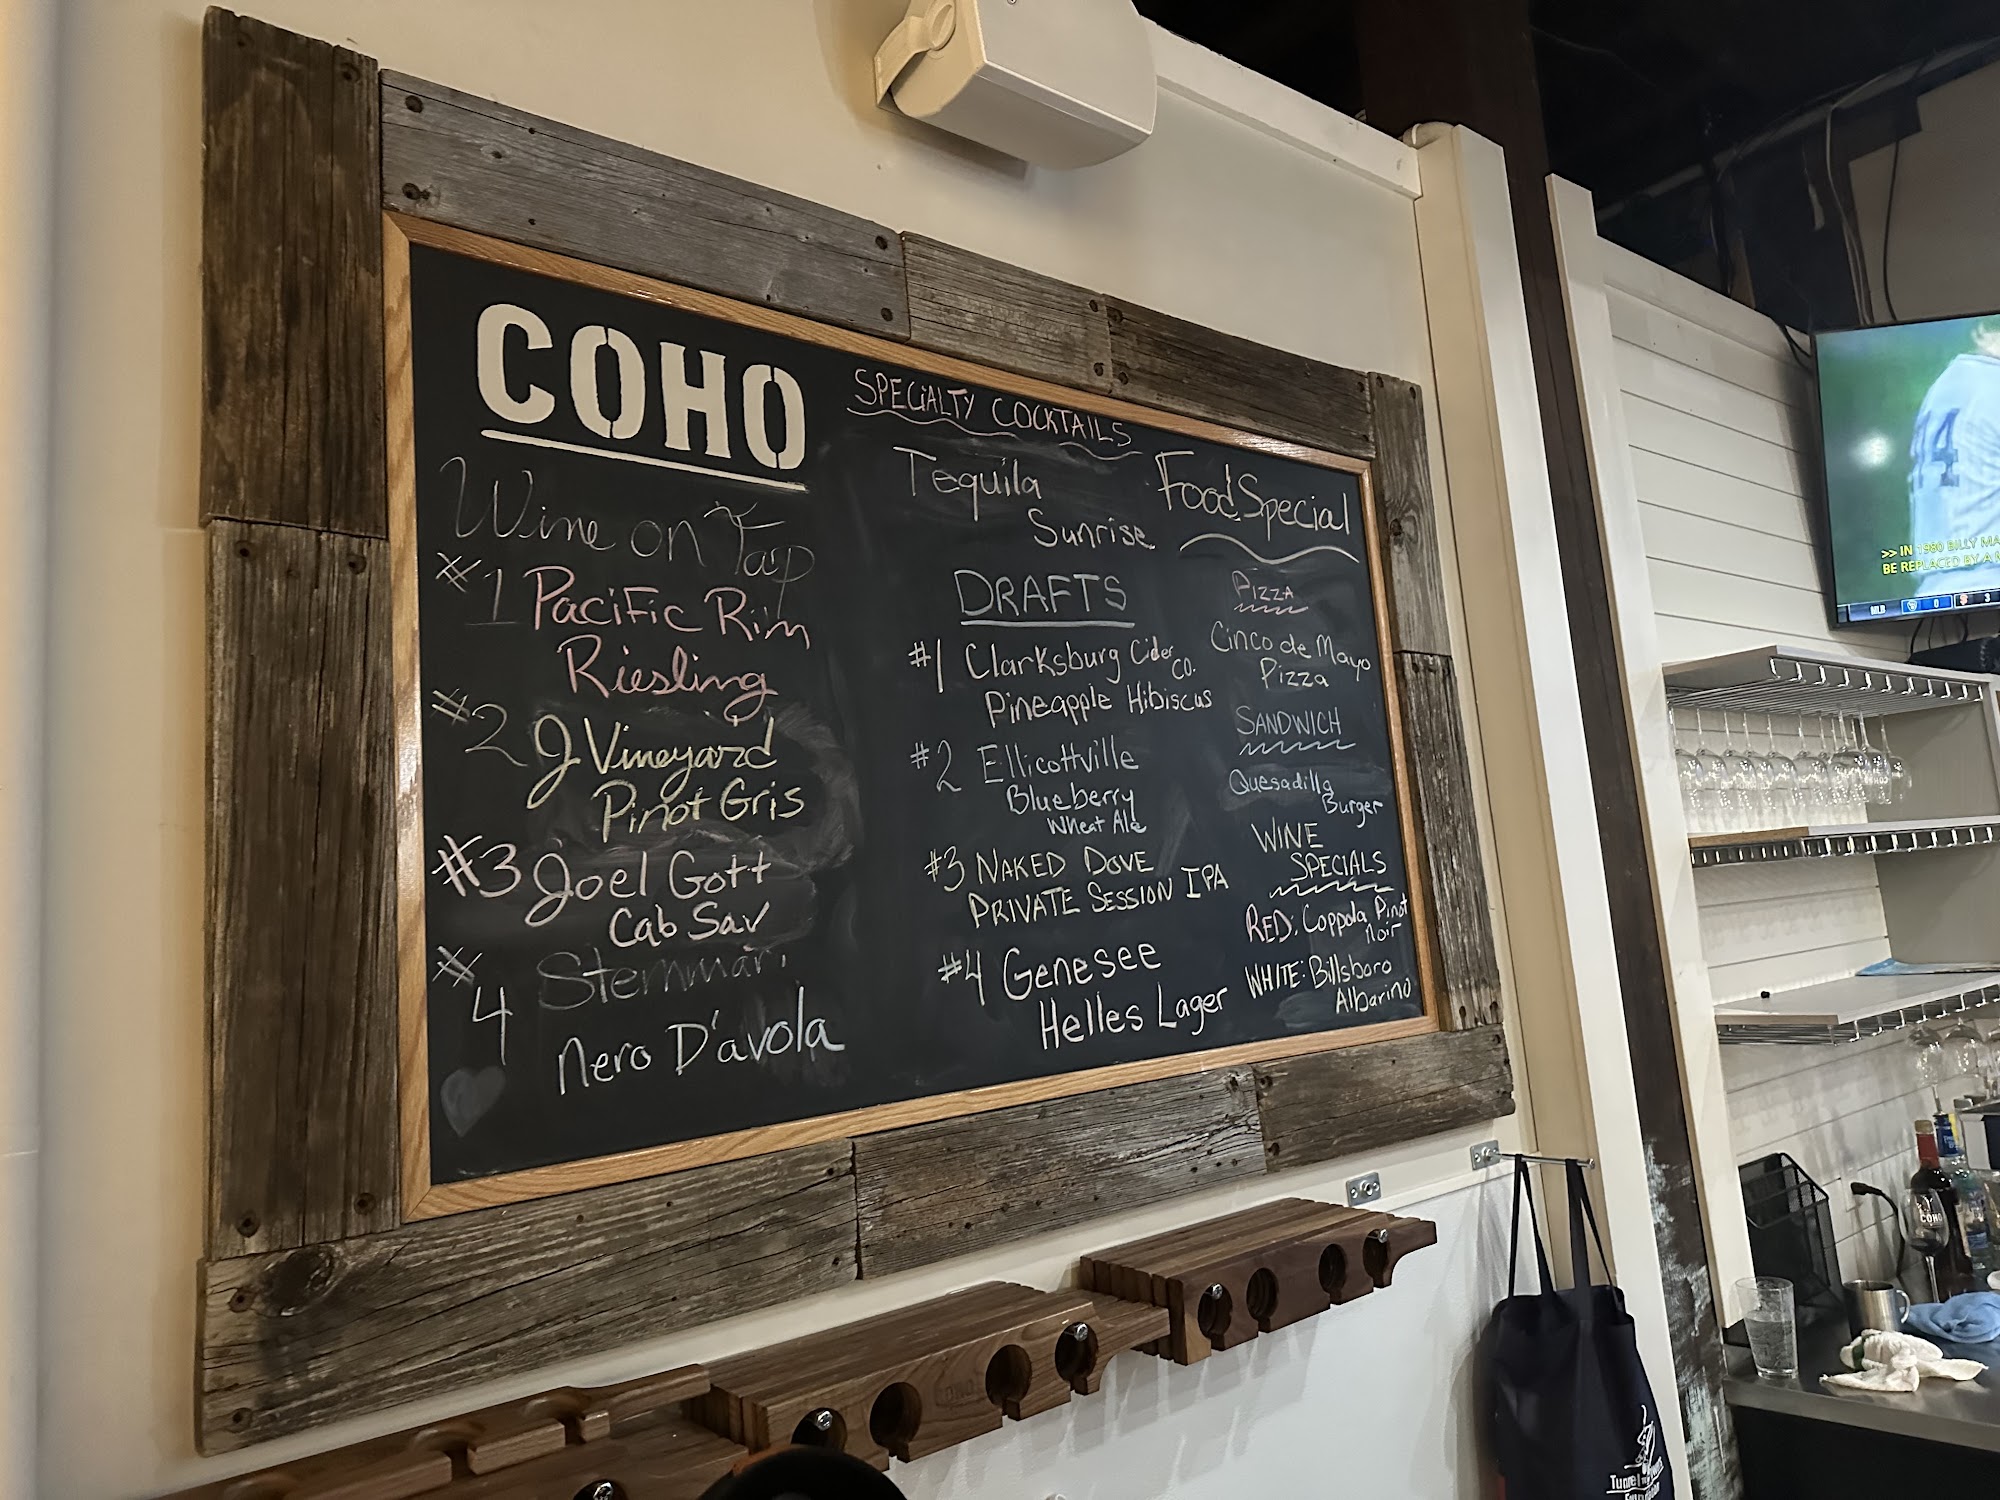 COHO
Wine on Tap
#1 Pacific Rim
Riesling
#2 J Vineyard
Pinot Gris
#3 Joel Gott
Cab Sav
#4 Stemmari
Nero D'avola
SPECIALTY COCKTAILS
Tequila
Sunrise
DRAFTS
#1 Clarksburg Cider
Co.
Pineapple Hibiscus
#2 Ellicottville
Blueberry
Wheat Ale
#3 NAKED DOVE
PRIVATE SESSION IPA
#4 Genesee
Helles Lager
Food Special
PIZZA
Cinco de Mayo
Pizza
SANDWICH
Quesadilla
Burger
WINE
SPECIALS
RED: Coppola Pinot
Noir
WHITE: Billsboro
Albarino
44
>> IN 1980 BILLY
BE REPLACED BY A
MLB 0 3
COHO
COHO
Tunnel